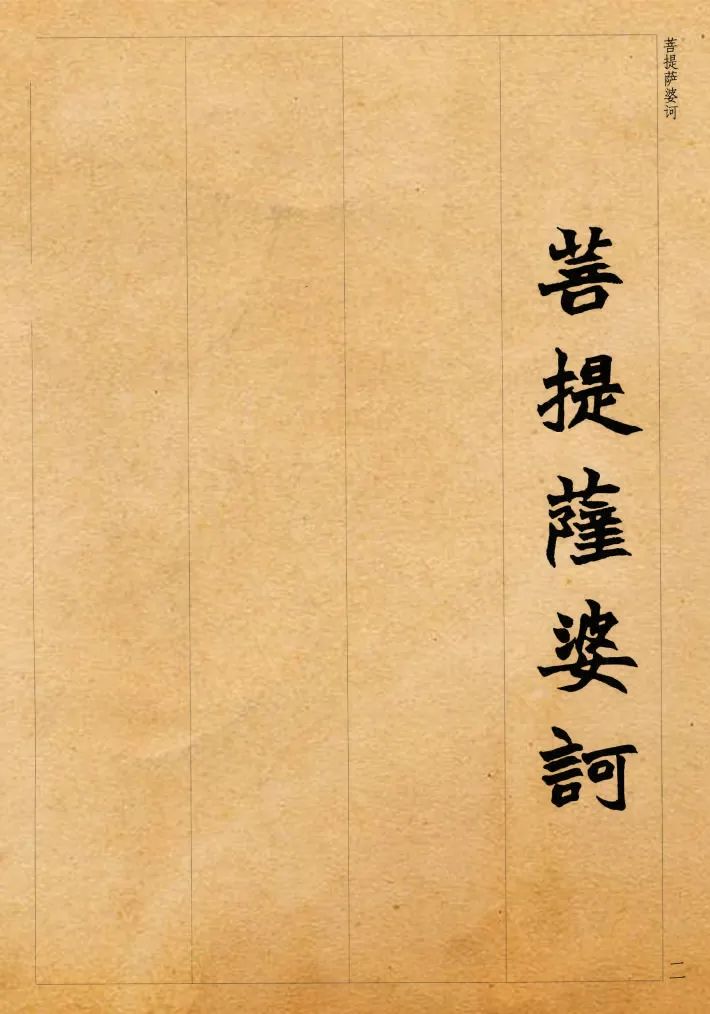 菩提萨婆诃
菩提薩婆訶
二